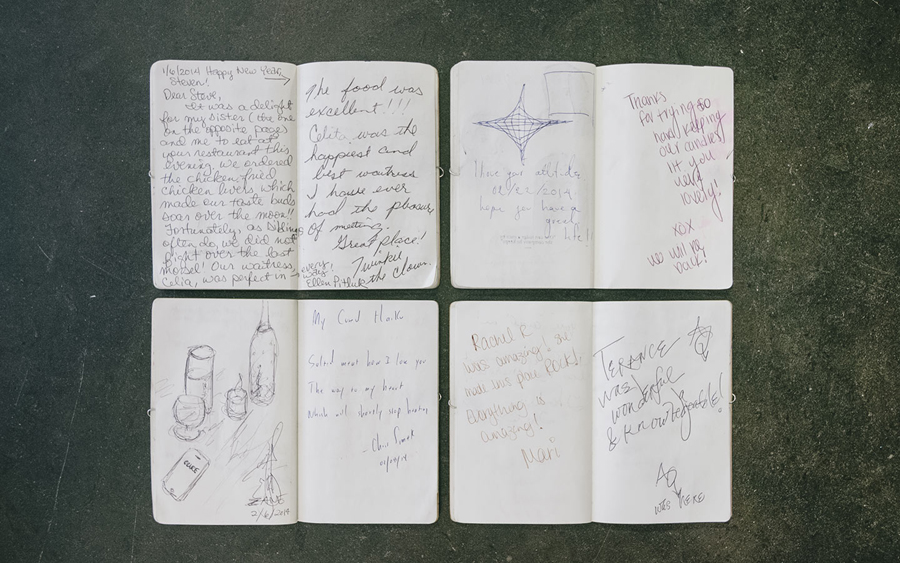 1/6/2014 Happy New Year,
Steven!
Dear Steve,
It was a delight
for my sister (the one
on the opposite page)
and me to eat at
your restaurant this
evening. We ordered
the chicken-fried
chicken livers which
made our taste buds
soar over the moon!!
Fortunately, as siblings
often do, we did not
fight over the last
morsel! Our waitress,
Celia, was perfect in
every
way!
Ellen Pitluk
The food was
excellent!!!
Celia was the
happiest and
best waitress
I have ever
had the pleasure
of meeting.
Great place!
Twinkie
the clown.
I love your attitude,
02/22/2014.
hope you have a
great
life!!
Thanks
for trying so
hard keeping
our candles
lit you
were
lovely!
xox
we will be
back!
CLICK
2/6/2014
My Cured Haiku
Salted meat how I love you
The way to my heart
Which will shortly stop beating
- Chris
Rachel R
was amazing! She
made this place ROCK!
Everything is
amazing!
Mari
TERANCE
was
wonderful
& knowledgeable!
AQ
WAS HERE